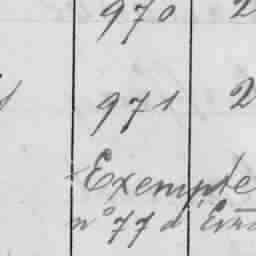 970 2
971 2
Exempte
n° 77 d'Evr